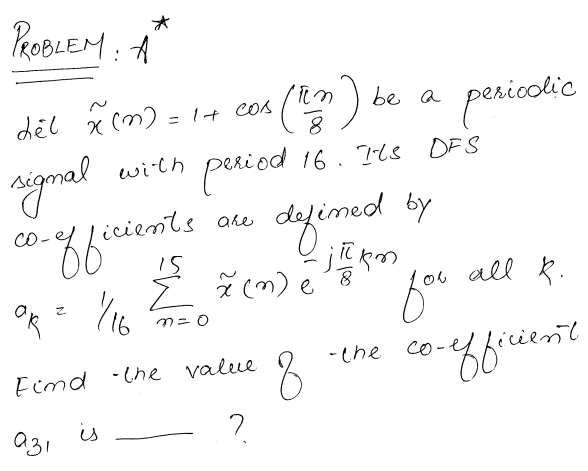 PROBLEM : A*
Let x̃(n) = 1 + cos(πn/8) be a periodic
signal with period 16. Its DFS
co-efficients are defined by
a_k = 1/16 Σ_{n=0}^{15} x̃(n) e^{-j π/8 kn} for all k.
Find the value of the co-efficient
a_31 is ___ ?